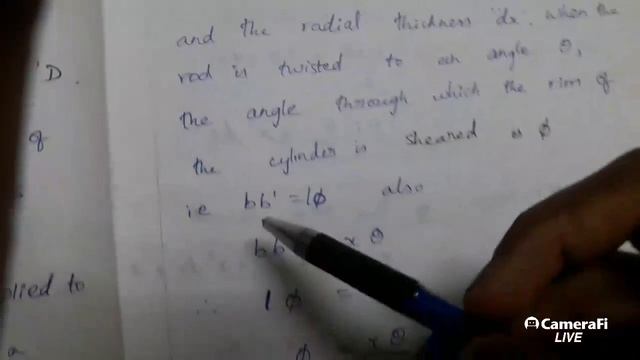 and the radial thickness 'dx'. when the
rod is twisted to an angle θ,
'D.
the angle through which the rim of
of
the cylinder is sheared is ϕ
ie bb' = lϕ also
bb x θ
plied to
∴ lϕ =
a
ϕ x θ
CameraFi
LIVE